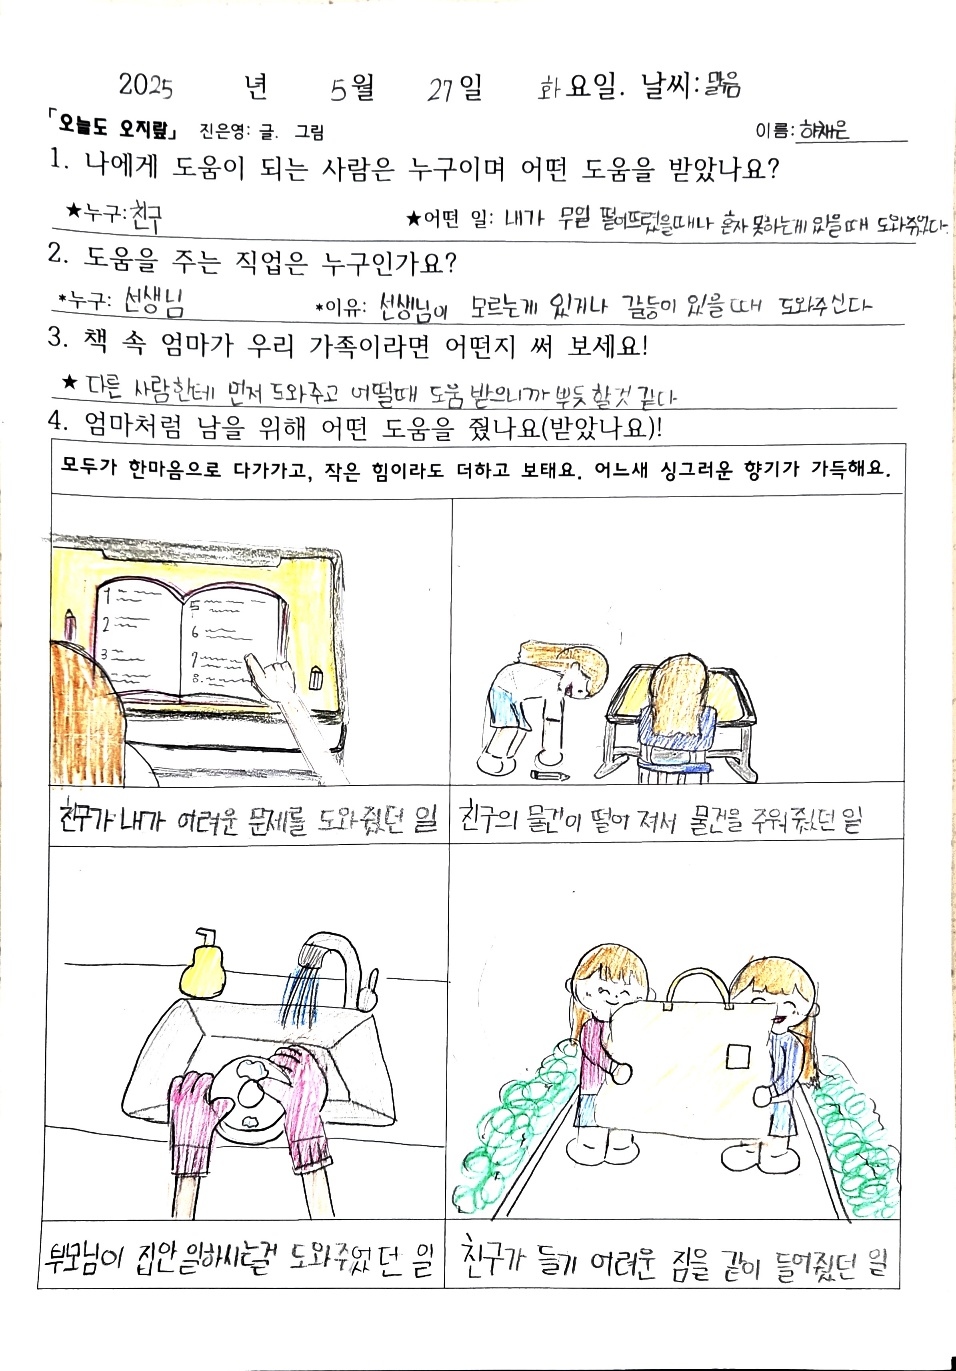 2025 년 5월 27일 화요일. 날씨: 맑음
「오늘도 오지랖」 진은영: 글. 그림 이름: 하채은
1. 나에게 도움이 되는 사람은 누구이며 어떤 도움을 받았나요?
★누구: 친구 ★어떤 일: 내가 무얼 떨어뜨렸을때나 혼자 못하는게 있을때 도와줬다.
2. 도움을 주는 직업은 누구인가요?
*누구: 선생님 *이유: 선생님이 모르는게 있거나 갈등이 있을때 도와주신다
3. 책 속 엄마가 우리 가족이라면 어떤지 써 보세요!
★ 다른 사람한테 먼저 도와주고 어떨때 도움 받으니까 뿌듯할것 같다
4. 엄마처럼 남을 위해 어떤 도움을 줬나요(받았나요)!
모두가 한마음으로 다가가고, 작은 힘이라도 더하고 보태요. 어느새 싱그러운 향기가 가득해요.
1 5
2 6
3 7
8.
친구가 내가 어려운 문제를 도와줬던 일
친구의 물건이 떨어져서 물건을 주워줬던 일
부모님이 집안일하시는걸 도와주었던 일
친구가 들기 어려운 짐을 같이 들어줬던 일